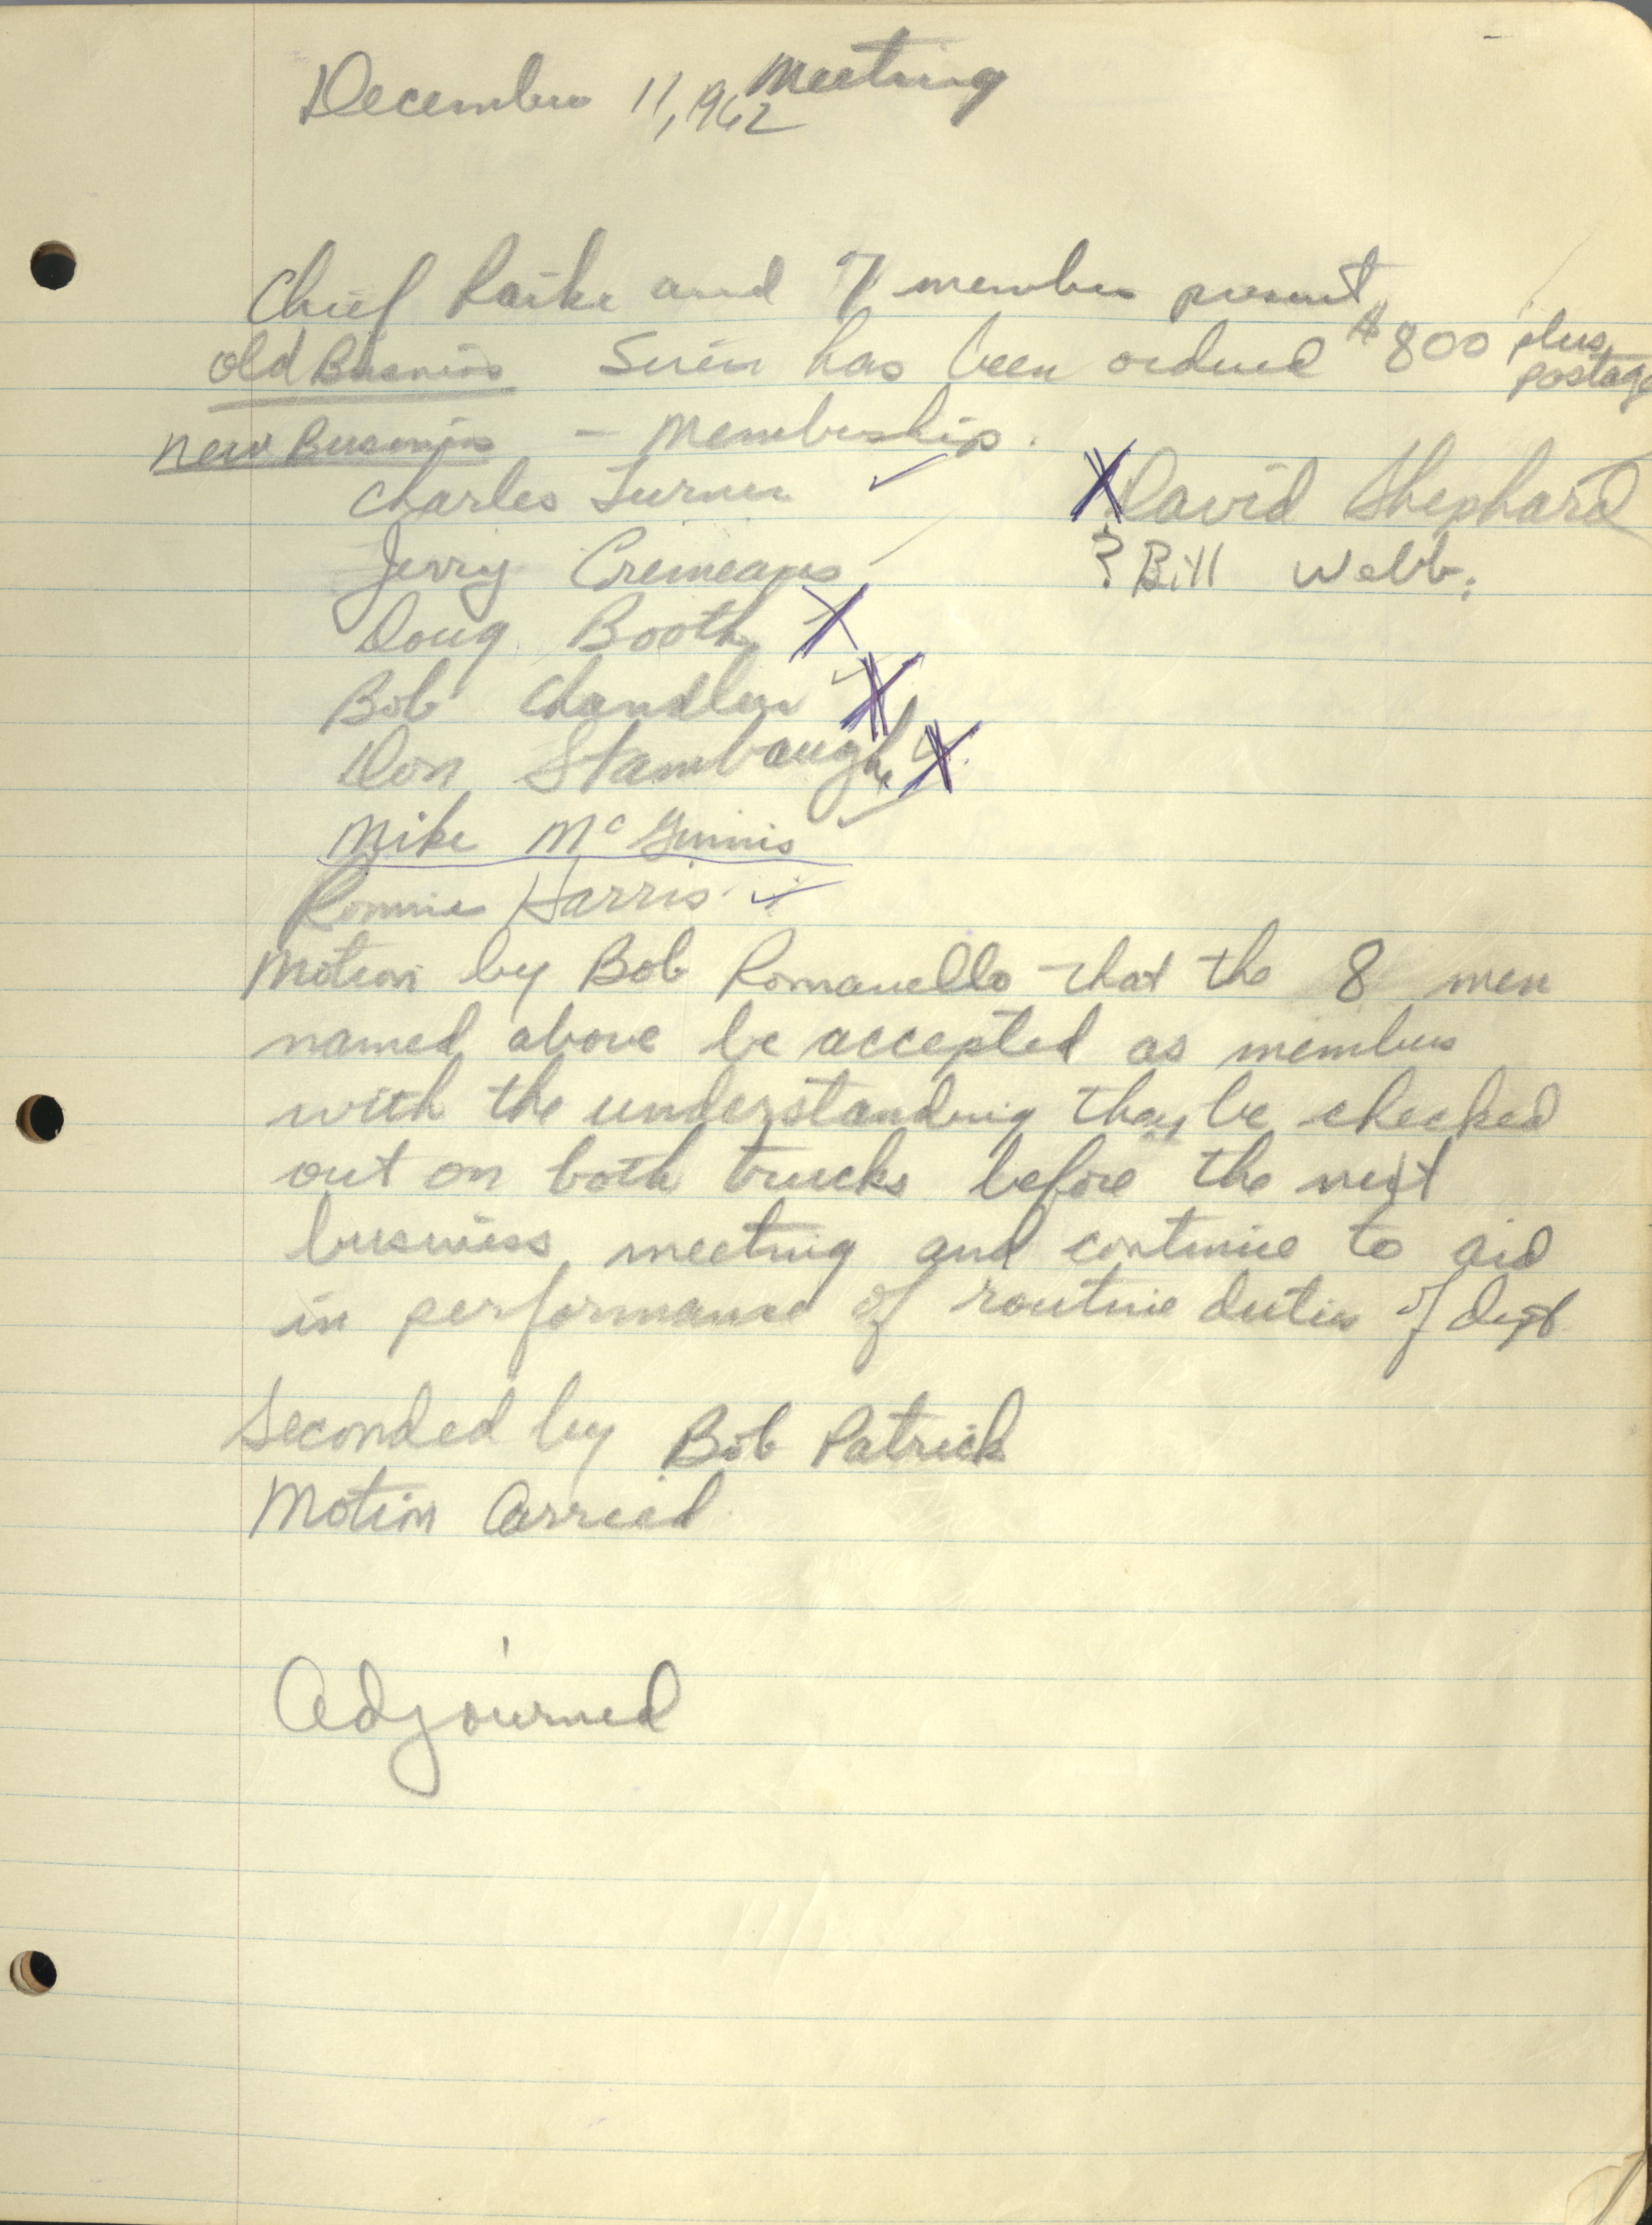 December 11, 1962 Meeting
Chief and 7 members present.
Old Business Siren has been ordered $800 plus postage
New Business - Membership.
Charles Turner ✓ X David Shephard
Jerry Cremeans ? Bill Webb.
Doug Booth X
Bob Chandler ✓ X
Don Stambaugh ✓ X
Mike McGinnis ✓
Ronnie Harris ✓
Motion by Bob Romanello that the 8 men
named above be accepted as members
with the understanding they be checked
out on both trucks before the next
business meeting and continue to aid
in performance of routine duties of dept
Seconded by Bob Patrick
Motion Carried
Adjourned